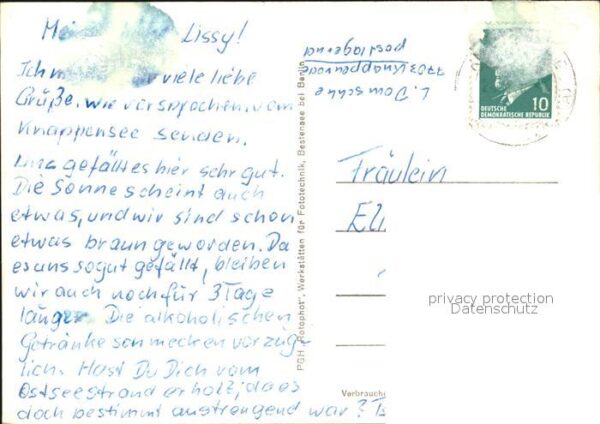 Lissy!
Ich viele liebe
Grüße, wie versprochen, vom
Knappensee senden.
Uns gefällt es hier sehr gut.
Die Sonne scheint auch
etwas, und wir sind schon
etwas braun geworden. Da
es uns so gut gefällt, bleiben
wir auch noch für 3 Tage
länger. Die alkoholischen
Getränke schmecken vorzüg-
lich. Hast Du Dich vom
Ostseestrand erholt; da es
doch bestimmt anstrengend war?
PGH „Rotophot", Werkstätten für Fototechnik, Bestensee bei Berlin
postlagernd
DEUTSCHE
DEMOKRATISCHE REPUBLIK
10
Fräulein
privacy protection
Datenschutz